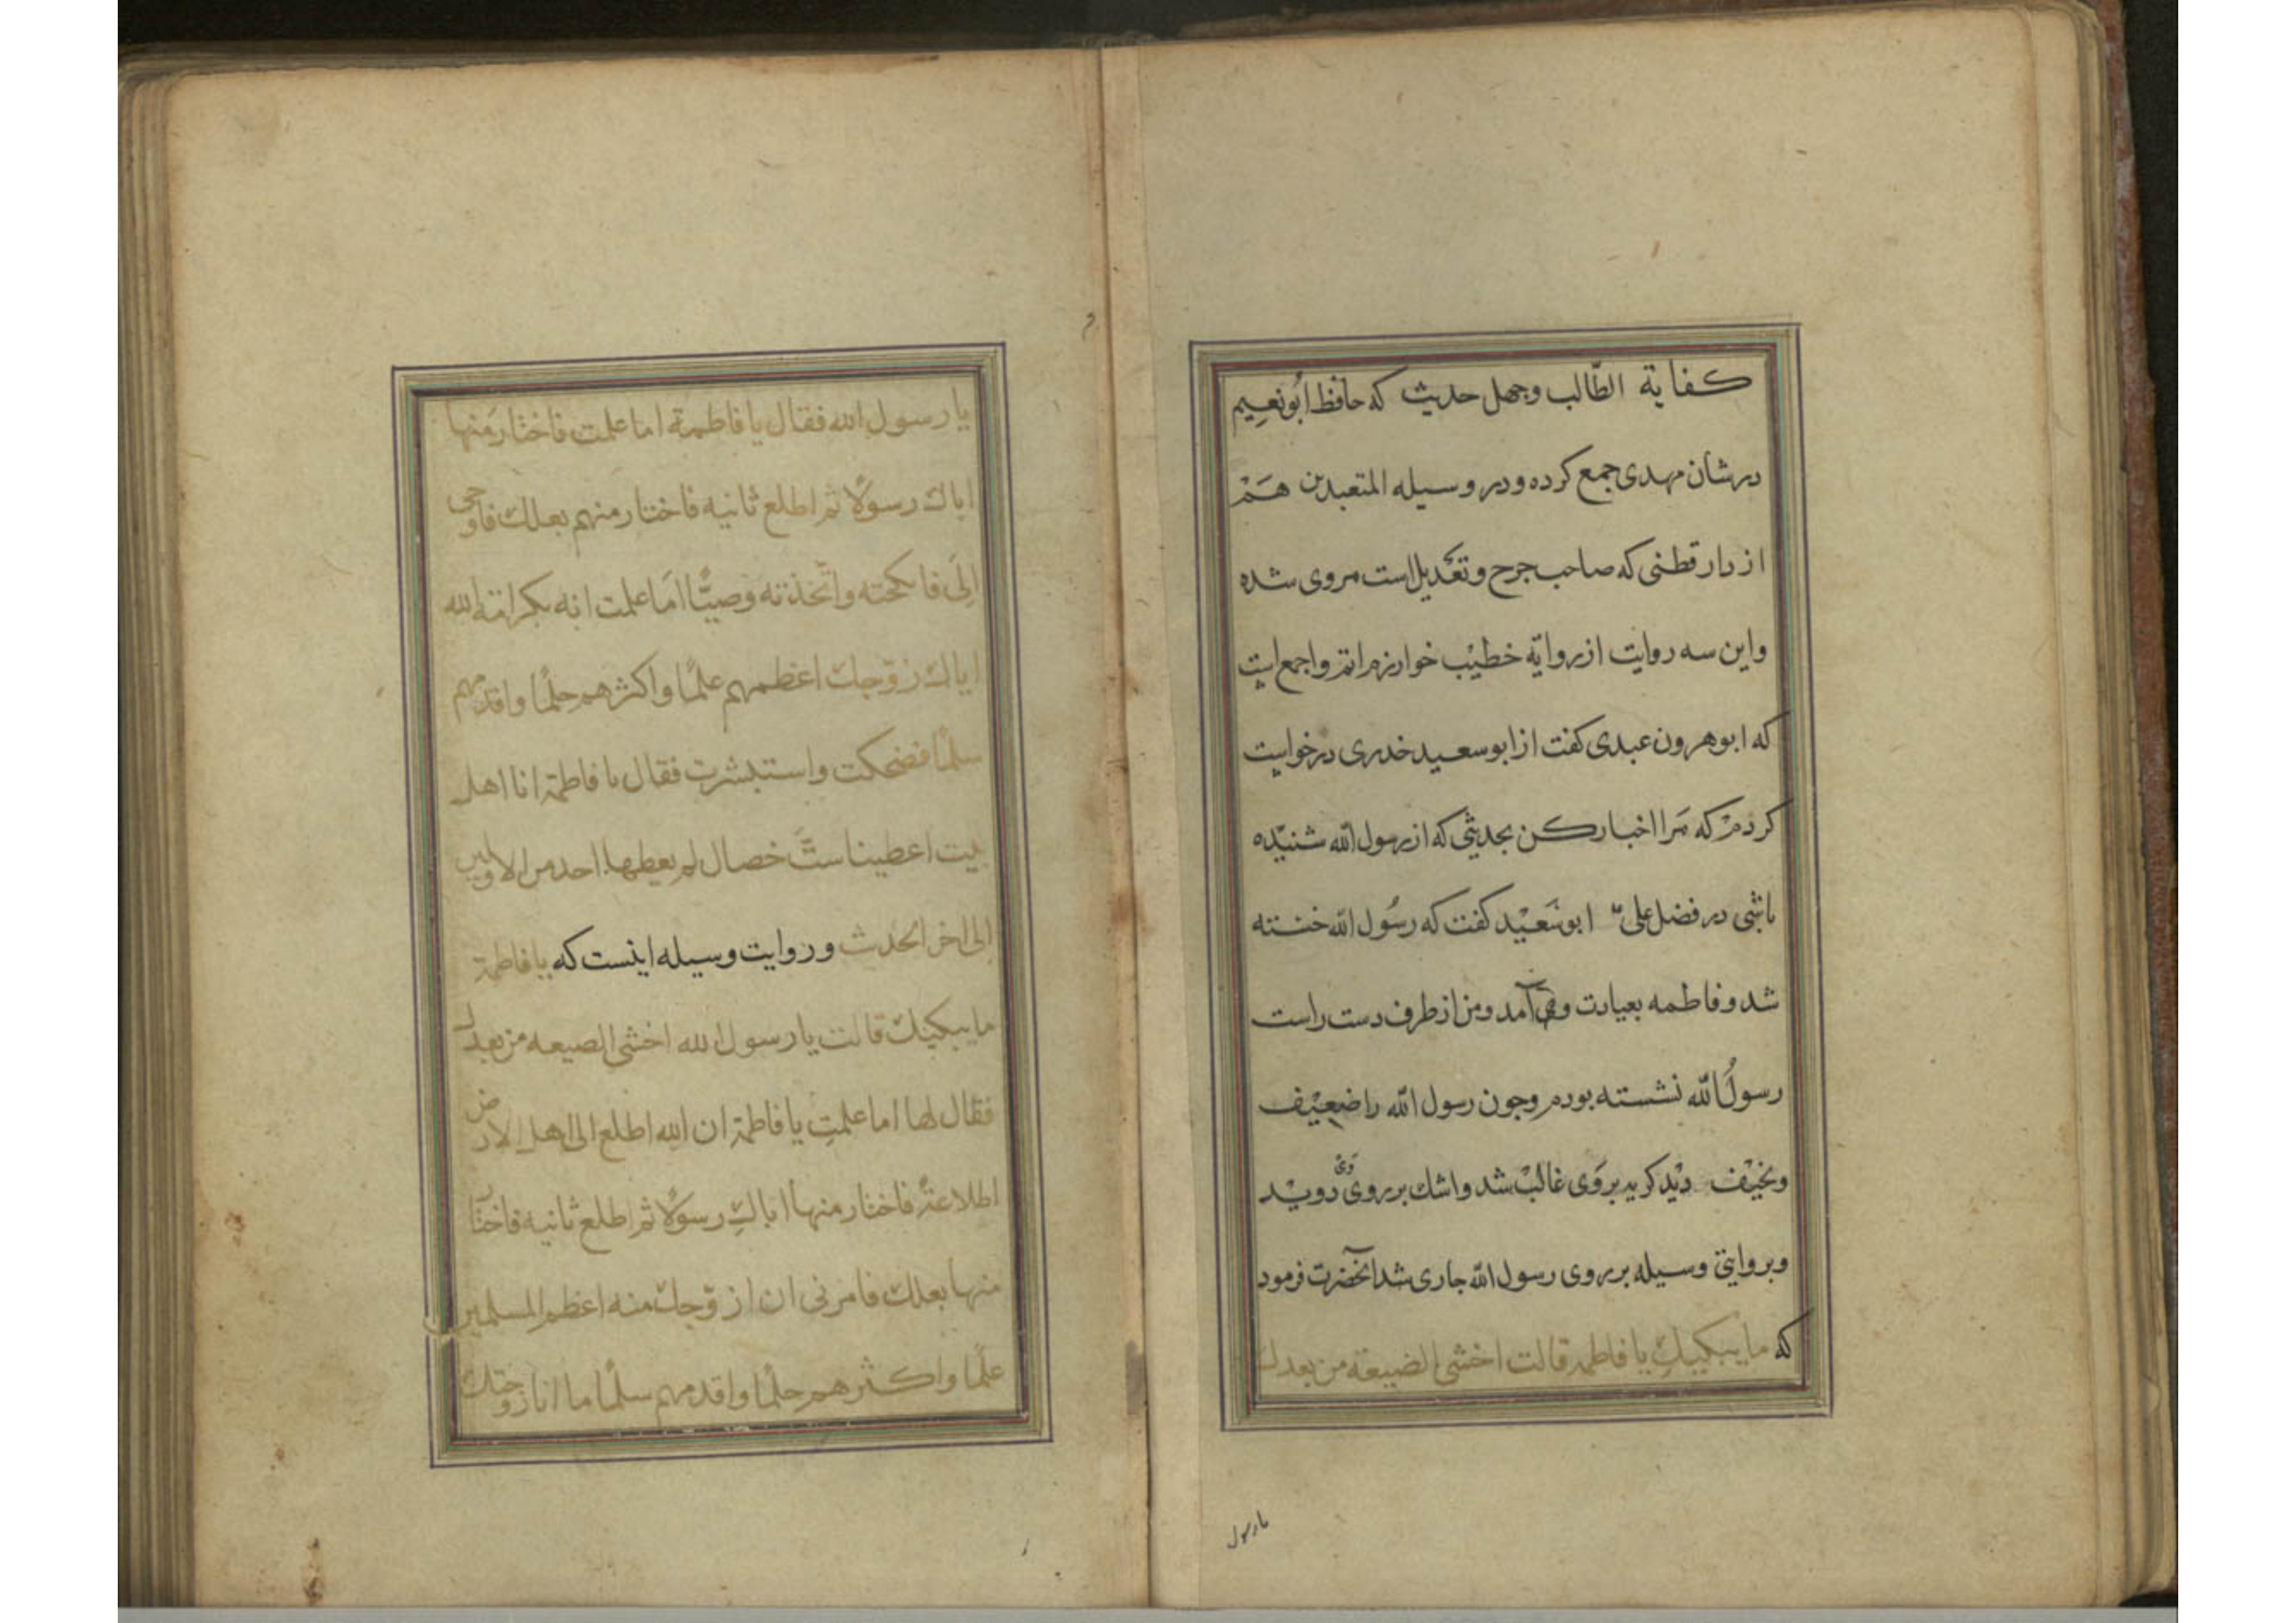 كفاية الطّالب وجهل حديث كه حافظ أبونعيم
در شان مهدى جمع كرده ودر وسيله المتعبدين هم
از دار قطنى كه صاحب جرح وتعديل است مروى شده
واين سه روايت از رواية خطيب خوارزم اتم واجمع است
كه ابوهرون عبدى كفت از ابوسعيد خدرى درخواست
كردم كه مرا اخبار كن بحديثى كه از رسول الله شنيده
باشى در فضل على ابوسعيد كفت كه رسول الله خسته
شد وفاطمه بعيادت وى آمد ومن از طرف دست راست
رسول الله نشسته بودم وچون رسول الله را ضعيف
ونحيف ديد كريه بروى غالب شد واشك بر روى وى دويد
وبروايتى وسيله بر روى رسول الله جارى شد آنحضرت فرمود
كه ما يبكيك يا فاطمه قالت اخشى الضيعة من بعدك
يا رسول
يا رسول الله فقال يا فاطمة اما علمت فاختار منها
اباك رسولا ثم اطلع ثانيه فاختار منهم بعلك فاوحى
إلى فانكحته واتّخذته وصيّا اما علمت انه بكرامة الله
اياك زوّجك اعظمهم علمًا واكثرهم حلمًا واقدمهم
سلمًا فضحكت واستبشرت فقال يا فاطمة انا اهل
بيت اعطينا ستّ خصال لم يعطها احد من الاولين
الى اخر الحديث وروايت وسيله اينست كه يا فاطمة
ما يبكيك قالت يا رسول الله اخشى الصيعه من بعدك
فقال لها اما علمتِ يا فاطمة ان الله اطلع الى اهل الارض
اطلاعة فاختار منها اباكِ رسولًا ثم اطلع ثانيه فاختار
منها بعلك فامرنى ان ازوّجك منه اعظم المسلمين
علمًا واكثرهم حلمًا واقدمهم سلمًا ما انا زوجتك